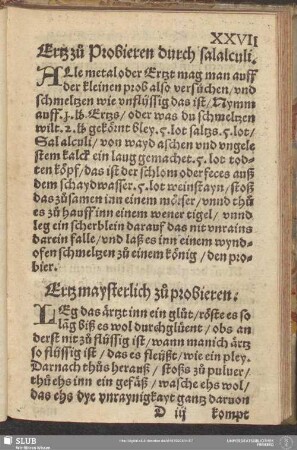 XXVII
Ertz zů Probieren durch salalculi.
ALle metal oder Ertzt mag man auff
der kleinen prob also versůchen/vnd
schmeltzen wie vnflüssig das ist/Nymm
auff.j.lb.Ertzs/oder was du schmeltzen
wilt.2.lb gekörnt bley.5.lot saltzs.5.lot/
Sal alculi/von wayd aschen vnd vngele
stem kalck ein laug gemachet.5.lot tod-
ten köpf/das ist der schlom oder feces auß
dem schaydwasser.5.lot weinstayn/stoß
das zůsamen inn einem mörser/vnnd thů
es zů hauff inn einem wener tigel/vnnd
leg ein scherblein darauf das nit vnrains
darein falle/vnd laß es inn einem wynd-
ofen schmeltzen zů einem könig/den pro-
bier.
Ertz maysterlich zů probieren.
LEg das ärtzt inn ein glůt/röste es so
lãg biß es wol durchglüent/obs an
derst nit zů flüssig ist/wann manich ärtz
so flüssig ist/das es fleüßt/wie ein pley.
Darnach thůs herauß/stoßs zů pulver/
thů ehs inn ein gefäß/wasche ehs wol/
das ehs dye vnraynigkayt gantz daruon
D iij kompt
SLUB